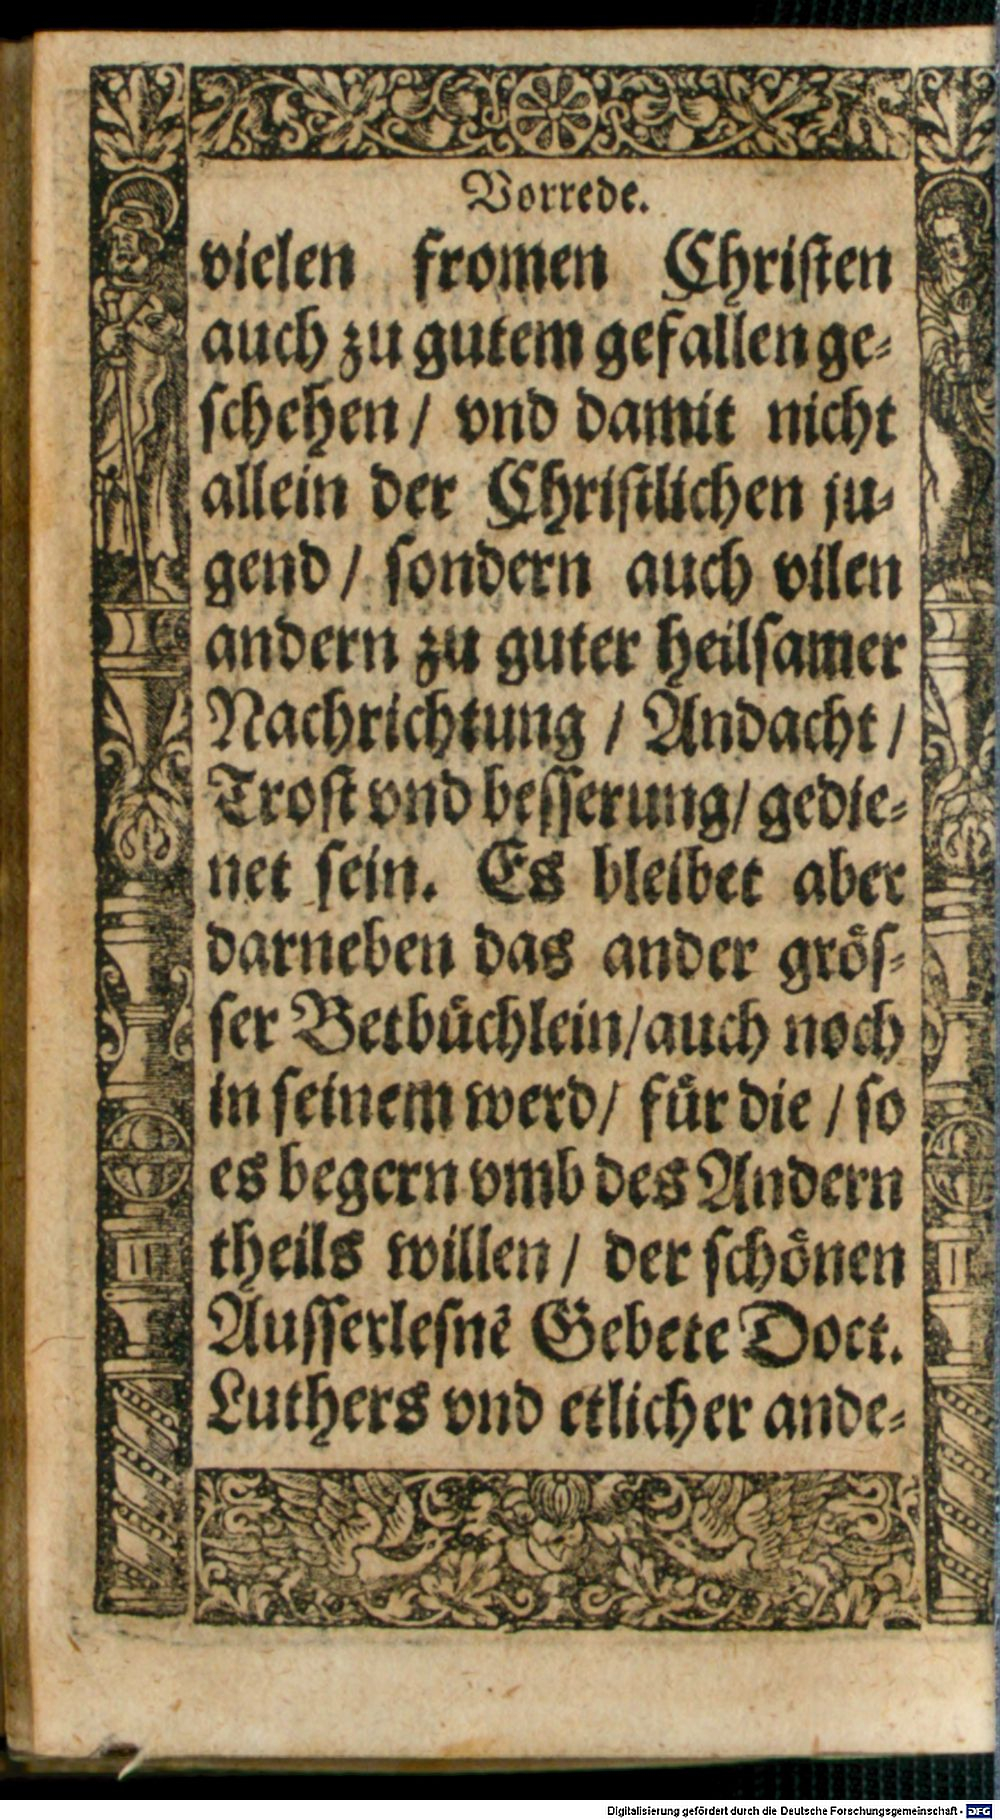 Vorrede.
vielen fromen Chriſten
auch zu gutem gefallen ge⸗
ſchehen / vnd damit nicht
allein der Chriſtlichen ju⸗
gend / ſondern auch vilen
andern zu guter heilſamer
Nachrichtung / Andacht /
Troſt vnd beſſerung / gedie⸗
net ſein. Es bleibet aber
darneben das ander gröſ⸗
ſer Betbüchlein / auch noch
in ſeinem werd / für die / ſo
es begern vmb des Andern
theils willen / der ſchönen
Auſſerleſnē Gebete Doct.
Luthers vnd etlicher ande⸗
Digitalisierung gefördert durch die Deutsche Forschungsgemeinschaft - DFG